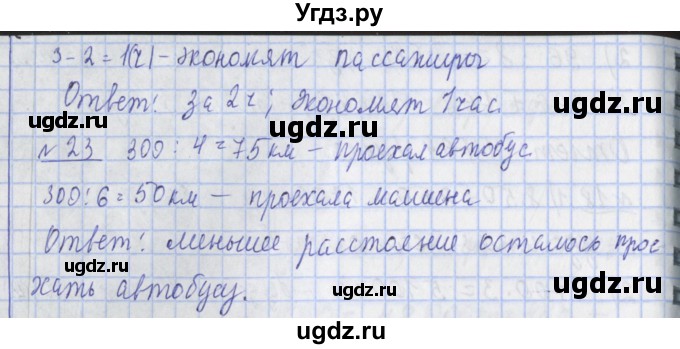 Угдз.ру
3 - 2 = 1(ч) - экономят пассажиры
Ответ: за 2 ч; экономят 1 час.
№ 23 300 : 4 = 75 км — проехал автобус
300 : 6 = 50 км — проехала машина
Ответ: меньшее расстояние осталось прое-
хать автобусу.
ugdz.ru
ugdz.ru
ugdz.ru
ugdz.ru
ugdz.ru
ugdz.ru
ugdz.ru
ugdz.ru
ugdz.ru
ugdz.ru